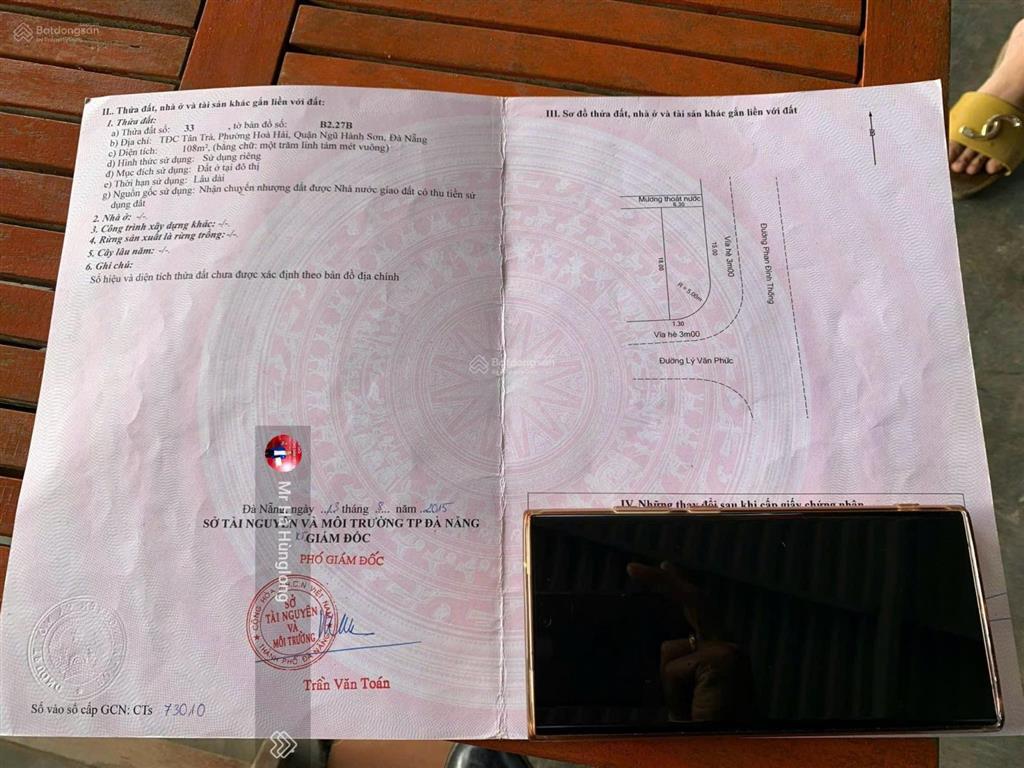 Batdongsan
by PropertyGuru
II. Thửa đất, nhà ở và tài sản khác gắn liền với đất:
1. Thửa đất:
a) Thửa đất số: 33 , tờ bản đồ số: B2.27B
b) Địa chỉ: TĐC Tân Trà, Phường Hoà Hải, Quận Ngũ Hành Sơn, Đà Nẵng
c) Diện tích: 108m², (bằng chữ: một trăm linh tám mét vuông)
d) Hình thức sử dụng: Sử dụng riêng
đ) Mục đích sử dụng: Đất ở tại đô thị
e) Thời hạn sử dụng: Lâu dài
g) Nguồn gốc sử dụng: Nhận chuyển nhượng đất được Nhà nước giao đất có thu tiền sử
dụng đất
2. Nhà ở: -/-
3. Công trình xây dựng khác: -/-
4. Rừng sản xuất là rừng trồng: -/-
5. Cây lâu năm: -/-
6. Ghi chú:
Số hiệu và diện tích thửa đất chưa được xác định theo bản đồ địa chính
Đà Nẵng, ngày 13 tháng 8 năm 2015
SỞ TÀI NGUYÊN VÀ MÔI TRƯỜNG TP ĐÀ NẴNG
GIÁM ĐỐC
PHÓ GIÁM ĐỐC
SỞ
TÀI NGUYÊN
VÀ
MÔI TRƯỜNG
THÀNH PHỐ ĐÀ NẴNG
Trần Văn Toán
Số vào sổ cấp GCN: CTs 73010
III. Sơ đồ thửa đất, nhà ở và tài sản khác gắn liền với đất
B
Mương thoát nước
6.30
18.00
15.00
R = 5.00m
1.30
Vỉa hè 3m00
Vỉa hè 3m00
Đường Phan Đình Thông
Đường Lý Văn Phức
Batdongsan
by PropertyGuru
IV. Những thay đổi sau khi cấp giấy chứng nhận